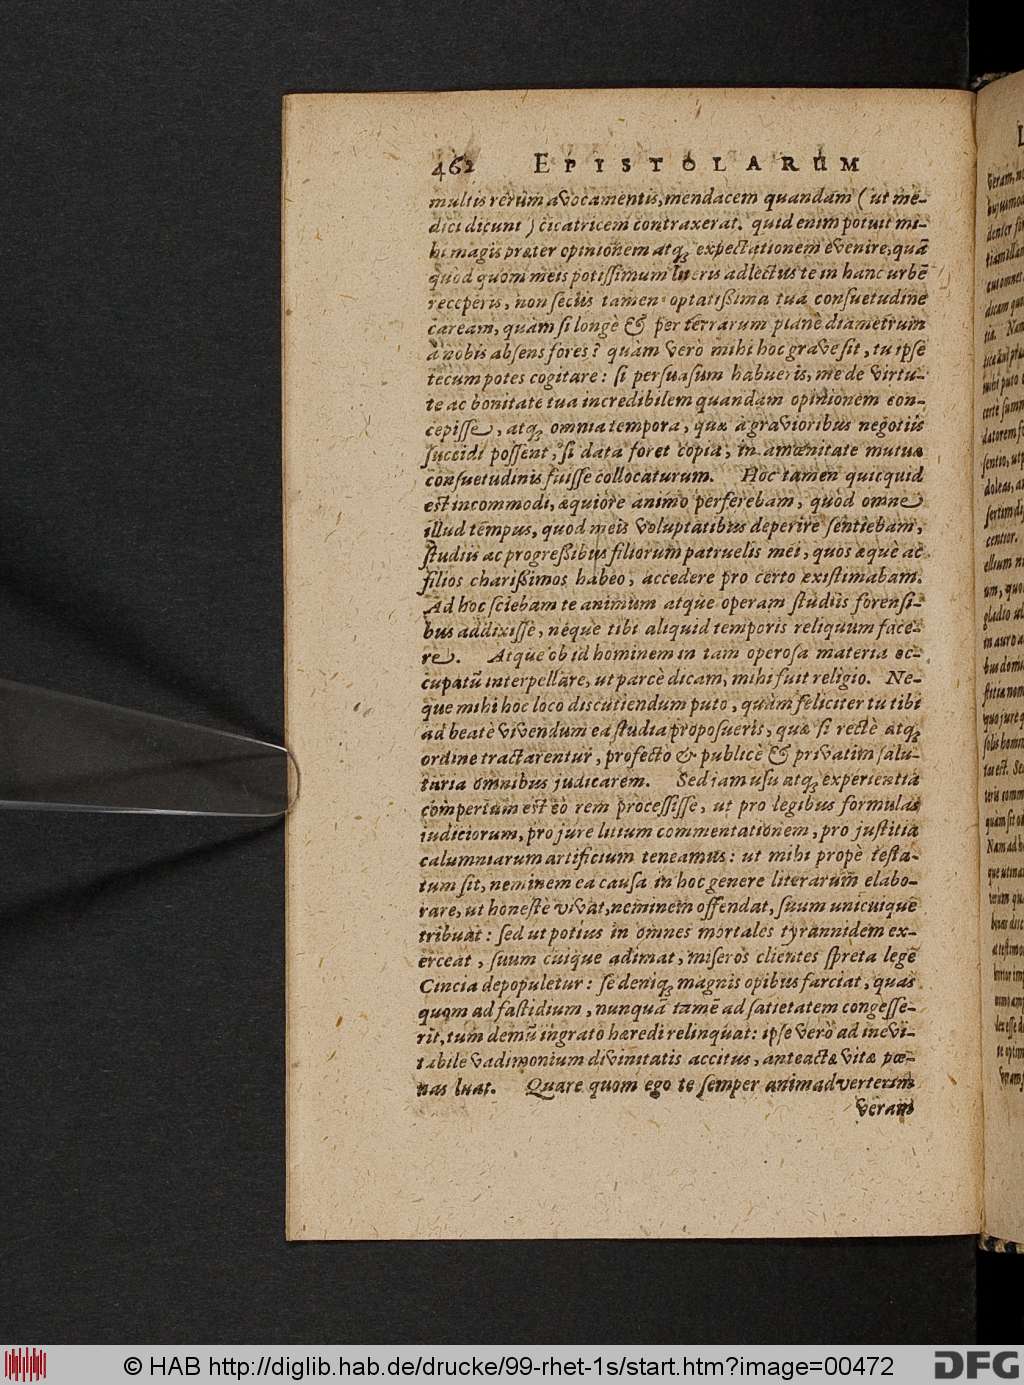 462 EPISTOLARUM
multis rerum avocamentis, mendacem quandam (ut me-
dici dicunt) cicatricem contraxerat. quid enim potuit mi-
hi magis præter opinionem atq; expectationem evenire, quã
quòd quom meis potissimum literis adlectus te in hanc urbẽ
receperis, non seciùs tamen optatißima tua consuetudine
caream, quàm si longè & per terrarum planè diametrum
à nobis absens fores? quàm verò mihi hoc grave sit, tu ipse
tecum potes cogitare: si persuasum habueris, me de virtu-
te ac bonitate tua incredibilem quandam opinionem con-
cepisse, atq; omnia tempora, quæ à gravioribus negotiis
succidi possent, si data foret copia, in amœnitate mutuæ
consuetudinis fuisse collocaturum. Hoc tamen quicquid
est incommodi, æquiore animo perferebam, quòd omne
illud tempus, quod meis voluptatibus deperire sentiebam,
studiis ac progreßibus filiorum patruelis mei, quos æquè ac
filios charißimos habeo, accedere pro certo existimabam.
Ad hoc sciebam te animum atque operam studiis forensi-
bus addixisse, neque tibi aliquid temporis reliquum face-
re. Atque ob id hominem in tam operosa materia oc-
cupatũ interpellare, ut parcè dicam, mihi fuit religio. Ne-
que mihi hoc loco discutiendum puto, quàm feliciter tu tibi
ad beatè vivendum ea studia proposueris, quæ si rectè atq;
ordine tractarentur, profectò & publicè & privatim salu-
taria omnibus judicarem. Sed jam usu atq; experientia
compertum est eò rem processisse, ut pro legibus formulas
iudiciorum, pro jure litium commentationem, pro justitia
calumniarum artificium teneamus: ut mihi propè testa-
tum sit, neminem ea causa in hoc genere literarum elabo-
rare, ut honestè vivat, neminem offendat, suum unicuique
tribuat: sed ut potius in omnes mortales tyrannidem ex-
erceat, suum cuique adimat, miseros clientes spreta lege
Cincia depopuletur: se deniq; magnis opibus farciat, quas
quom ad fastidium, nunquã tamẽ ad satietatem congesse-
rit, tum demũ ingrato hæredi relinquat: ipse verò ad inevi-
tabile vadimonium divinitatis accitus, anteactæ vitæ pœ-
nas luat. Quare quom ego te semper animadverterim
veram
© HAB http://diglib.hab.de/drucke/99-rhet-1s/start.htm?image=00472
DFG